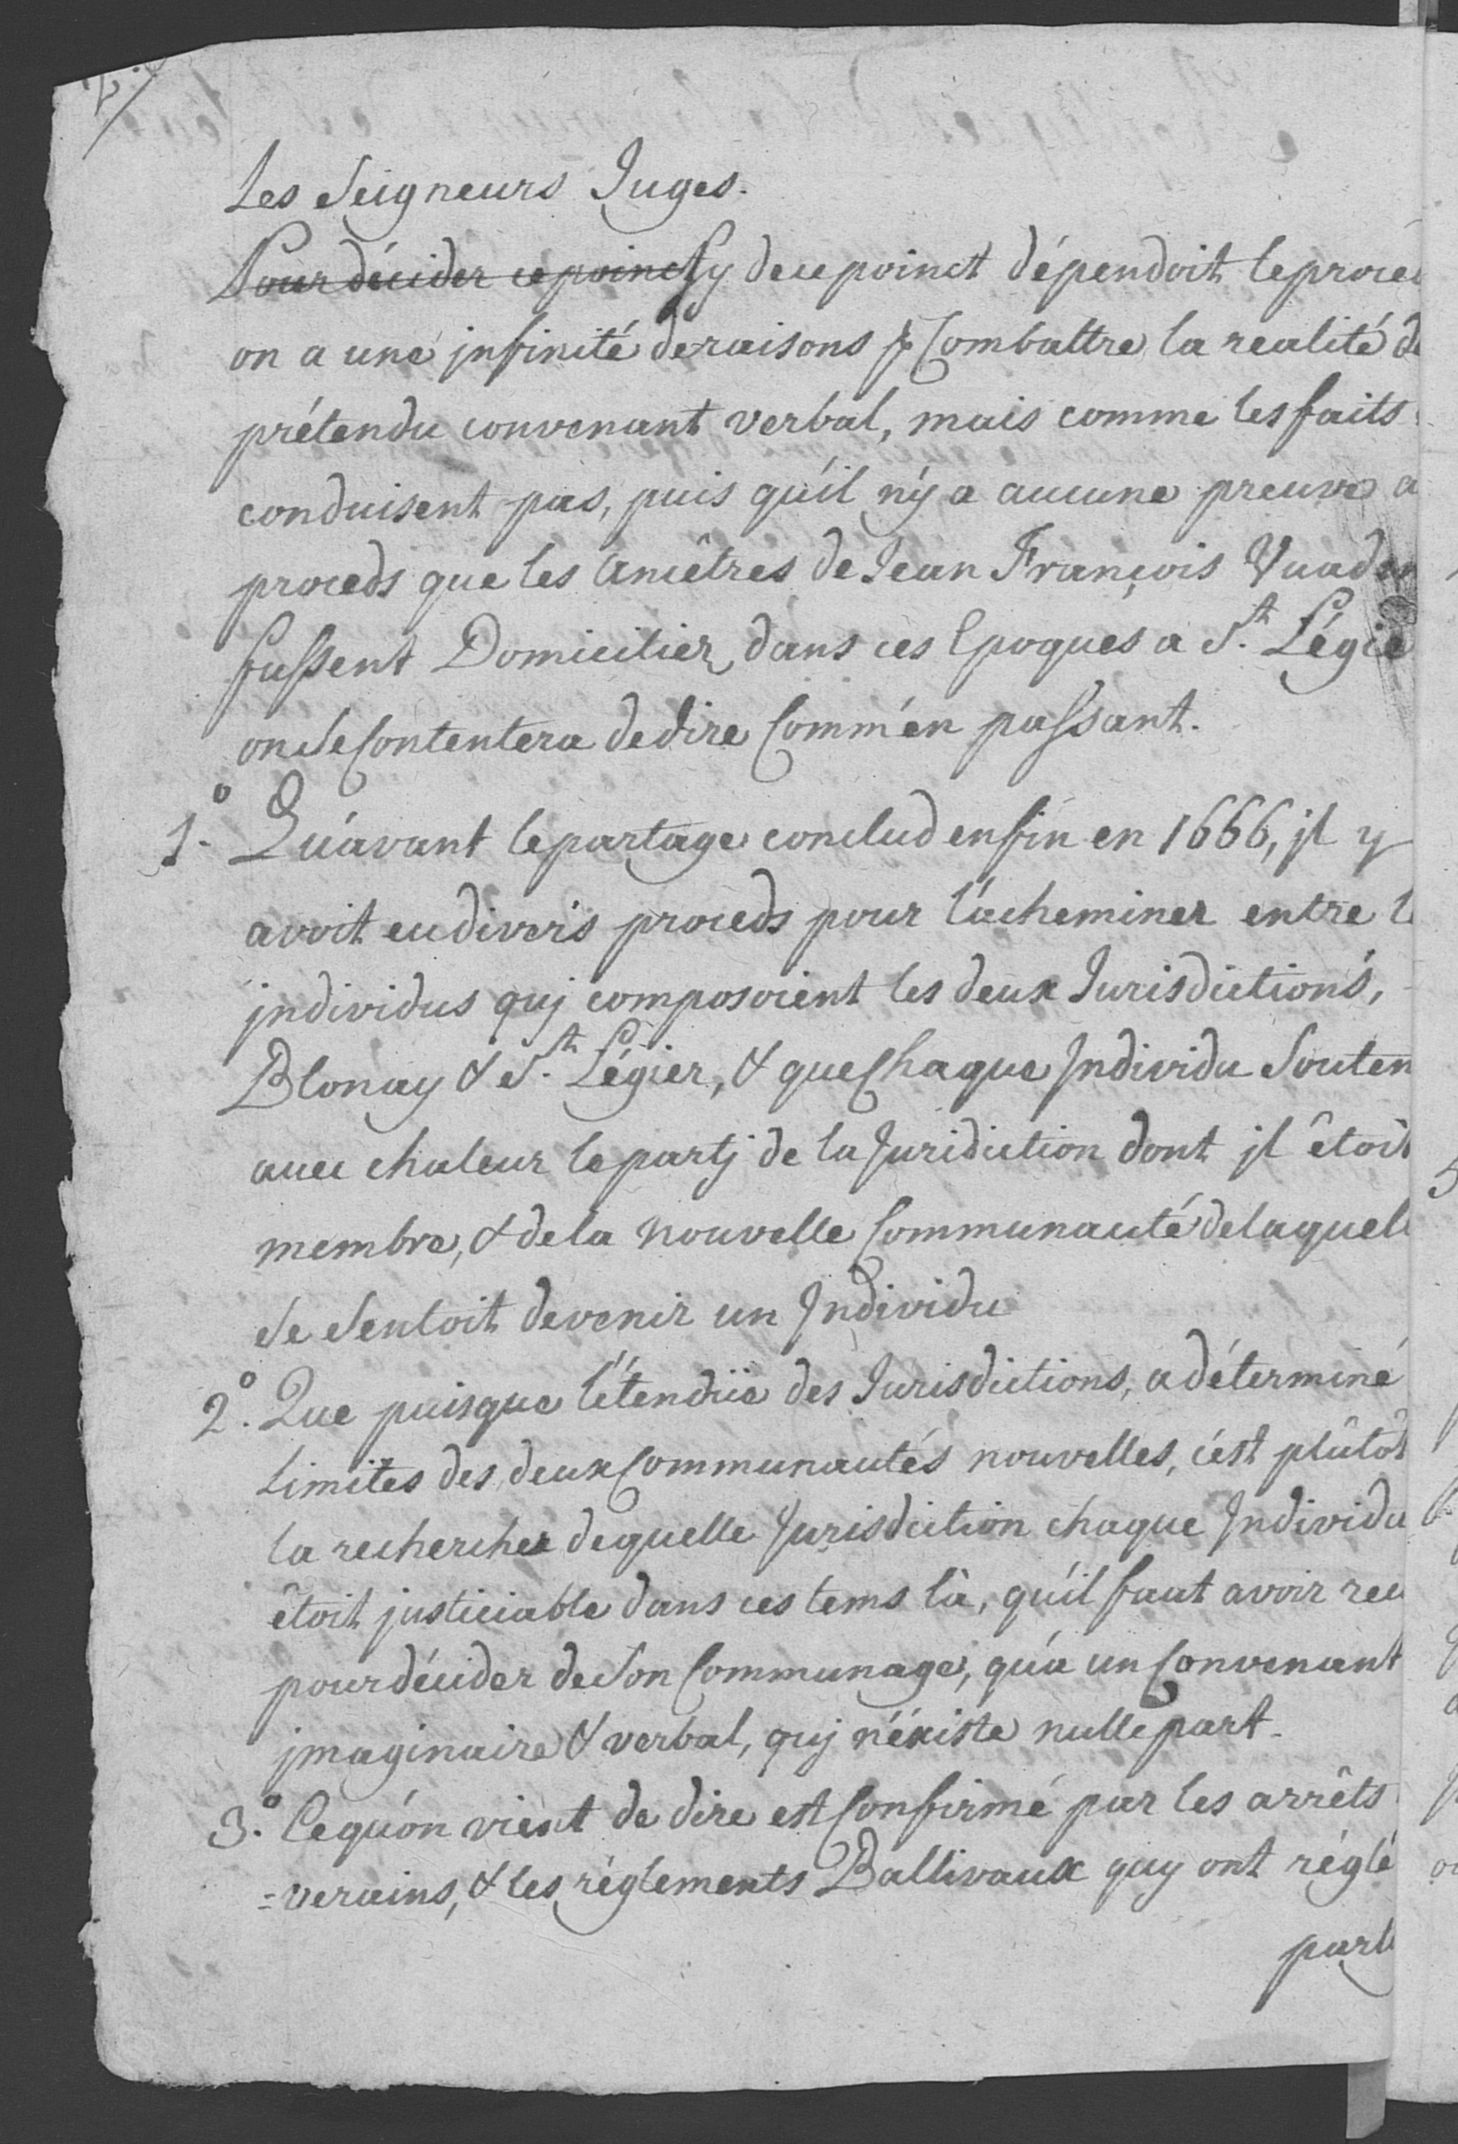 Les Seigneurs Juges.
Pour décider ce poinct Sy de ce poinct dépendoit le procé
on a une jnfinité de raisons p Combattre la realité de
prétendu convenant verbal, mais comme les faits
conduisent pas, puis qu'il n'y a aucune preuve a
proceds que les Ancêtres de Jean François
fussent Domicilier dans ces Epoques a St. Légie
on se Contentera de dire Comm'en passant.
1.o Qu'avant le partage conclud enfin en 1666, jl y
avoit eu divers proceds pour l'acheminer entre l
jndividus quj composoient les deux Jurisdictions,
Blonay & St. Légier, & que Chaque Individu Souten
avec chaleur le partj de la Juridiction dont jl êtoit
membre, & de la nouvelle Communauté de laquell
Se Sentoit devenir un Individu
2.o Que puisque l'étendüe des Jurisdictions, a déterminé
Limites des deux Communautés nouvelles, c'est plûtôt
la recherche de quelle Jurisdiction chaque Individu
êtoit justiciable dans ces tems là, qu'il faut avoir rec
pour décider de Son Communage, qu'a un Convenant
jmaginaire & verbal, quj n'éxiste nulle part.
3.o Ce qu'on vient de dire est Confirmé par les arrêts
=verains, & les réglements Ballivaux quy ont réglé
parl